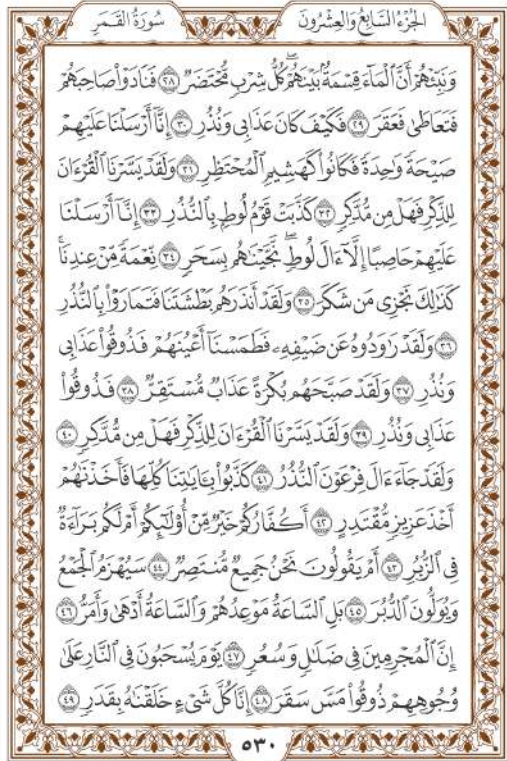 الجُزْءُ السَّابِعُ وَالعِشْرُونَ
سُورَةُ القَمَرِ
وَنَبِّئْهُمْ أَنَّ ٱلْمَآءَ قِسْمَةٌۢ بَيْنَهُمْۖ كُلُّ شِرْبٍ مُّحْتَضَرٌ ٢٨ فَنَادَوْا۟ صَاحِبَهُمْ
فَتَعَاطَىٰ فَعَقَرَ ٢٩ فَكَيْفَ كَانَ عَذَابِى وَنُذُرِ ٣٠ إِنَّآ أَرْسَلْنَا عَلَيْهِمْ
صَيْحَةً وَٰحِدَةً فَكَانُوا۟ كَهَشِيمِ ٱلْمُحْتَظِرِ ٣١ وَلَقَدْ يَسَّرْنَا ٱلْقُرْءَانَ
لِلذِّكْرِ فَهَلْ مِن مُّدَّكِرٍ ٣٢ كَذَّبَتْ قَوْمُ لُوطٍۭ بِٱلنُّذُرِ ٣٣ إِنَّآ أَرْسَلْنَا
عَلَيْهِمْ حَاصِبًا إِلَّآ ءَالَ لُوطٍۖ نَّجَّيْنَٰهُم بِسَحَرٍ ٣٤ نِّعْمَةً مِّنْ عِندِنَاۚ
كَذَٰلِكَ نَجْزِى مَن شَكَرَ ٣٥ وَلَقَدْ أَنذَرَهُم بَطْشَتَنَا فَتَمَارَوْا۟ بِٱلنُّذُرِ
٣٦ وَلَقَدْ رَٰوَدُوهُ عَن ضَيْفِهِۦ فَطَمَسْنَآ أَعْيُنَهُمْ فَذُوقُوا۟ عَذَابِى
وَنُذُرِ ٣٧ وَلَقَدْ صَبَّحَهُم بُكْرَةً عَذَابٌ مُّسْتَقِرٌّ ٣٨ فَذُوقُوا۟
عَذَابِى وَنُذُرِ ٣٩ وَلَقَدْ يَسَّرْنَا ٱلْقُرْءَانَ لِلذِّكْرِ فَهَلْ مِن مُّدَّكِرٍ ٤٠
وَلَقَدْ جَآءَ ءَالَ فِرْعَوْنَ ٱلنُّذُرُ ٤١ كَذَّبُوا۟ بِـَٔايَٰتِنَا كُلِّهَا فَأَخَذْنَٰهُمْ
أَخْذَ عَزِيزٍ مُّقْتَدِرٍ ٤٢ أَكُفَّارُكُمْ خَيْرٌ مِّنْ أُو۟لَٰٓئِكُمْ أَمْ لَكُم بَرَآءَةٌ
فِى ٱلزُّبُرِ ٤٣ أَمْ يَقُولُونَ نَحْنُ جَمِيعٌ مُّنتَصِرٌ ٤٤ سَيُهْزَمُ ٱلْجَمْعُ
وَيُوَلُّونَ ٱلدُّبُرَ ٤٥ بَلِ ٱلسَّاعَةُ مَوْعِدُهُمْ وَٱلسَّاعَةُ أَدْهَىٰ وَأَمَرُّ ٤٦
إِنَّ ٱلْمُجْرِمِينَ فِى ضَلَٰلٍ وَسُعُرٍ ٤٧ يَوْمَ يُسْحَبُونَ فِى ٱلنَّارِ عَلَىٰ
وُجُوهِهِمْ ذُوقُوا۟ مَسَّ سَقَرَ ٤٨ إِنَّا كُلَّ شَىْءٍ خَلَقْنَٰهُ بِقَدَرٍ ٤٩
٥٣٠